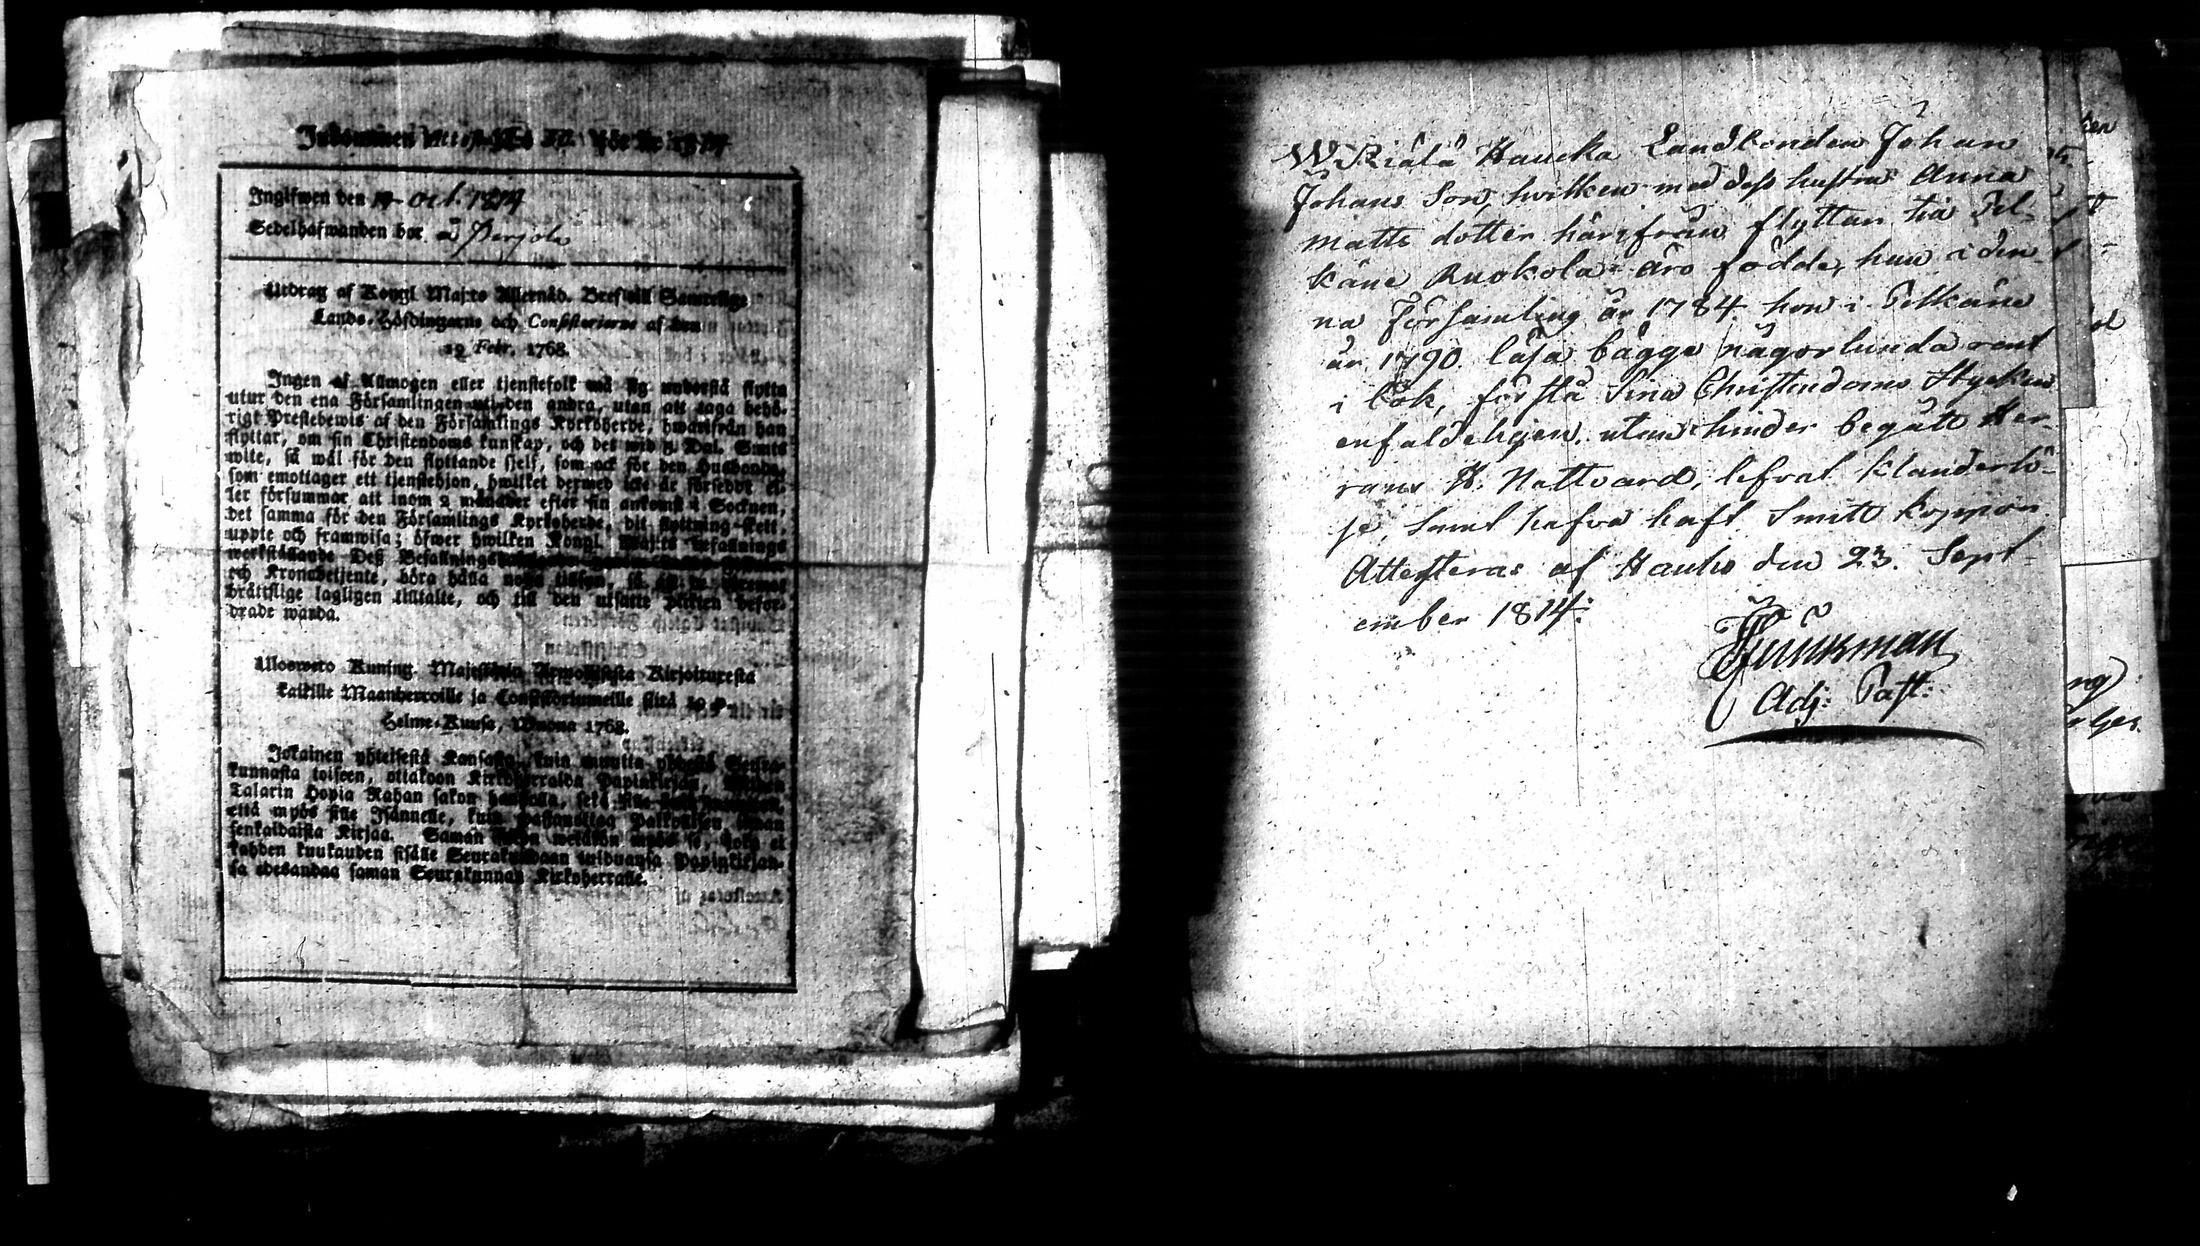 Inkommen
Ingifwen den 14 Oct. 1814
Sedelhafwanden bor å
Utdrag af Kongl. Maj:ts Allernåd. Bref till Samtelige
Lands-Höfdingarne och Consistorierne af den
19 Febr. 1768.
Ingen af Allmogen eller tjenstefolk må sig understå flytta
utur den ena Församlingen uti den andra, utan att taga behö-
rigt Prestebewis af den Församlings Kyrkoherde, hwarifrån han
flyttar, om sin Christendoms kunskap, och det wid 2 Dal. S:mts
wite, så wäl för den flyttande sjelf, som ock för den Husbonde,
som emottager ett tjenstehjon, hwilket dermed icke är försedt el-
ler försummar att inom 2 månader efter sin ankomst i Socknen,
det samma för den Församlings Kyrkoherde, dit flyttning skett,
uppte och framwisa; öfwer hwilken Kongl. Maj:ts befallnings
werkställande Deß Befallnings
och Kronobetjente, böra hålla noga tillsyn, så att de
brättslige lagligen tilltalte, och till den utsatte plikten befor-
drade warda.
Ulosweto Kuning. Majestetin Armollisesta Kirjoituxesta
kaikille Maanherroille ja Consistoriumeille siitä 19 p.
Helme-Kuusa, Wuonna 1768.
Jokainen yhteisestä Kansasta, kuin muutta yhdestä Seura-
kunnasta toiseen, ottakoon Kirkoherralda Papinkirjan,
Talarin Hopia Rahan sakon haastolla, sekä
että myös sille Isännelle, kuin wastanottaa Palkollisen ilman
senkaldaista Kirjaa. Saman sakon wetäkön myös se, joka ei
kahden kuukauden sisälle Seurakundaan tulduansa Papinkirjan-
sa edesandaa saman Seurakunnan Kirkoherralle.
Wikiälä Haucka Landbonden Johan
Johans Son, hvilken med dess hustru Anna
Matts dotter härifrån flyttar til Pel-
käne Ruokola äro födde, han i den-
na Församling år 1784 hon i Pelkäne
år 1790. läsa bägge någorlunda rent
i bok, förstå sina Christendoms Stycken
enfaldeligen, utan hinder begått Her-
rans H. Nattvard, lefvat klanderlö-
se, samt hafva haft Smitt koppor.
Attesteras af Hauho den 23. Sept-
ember 1814:
Adj: Past: